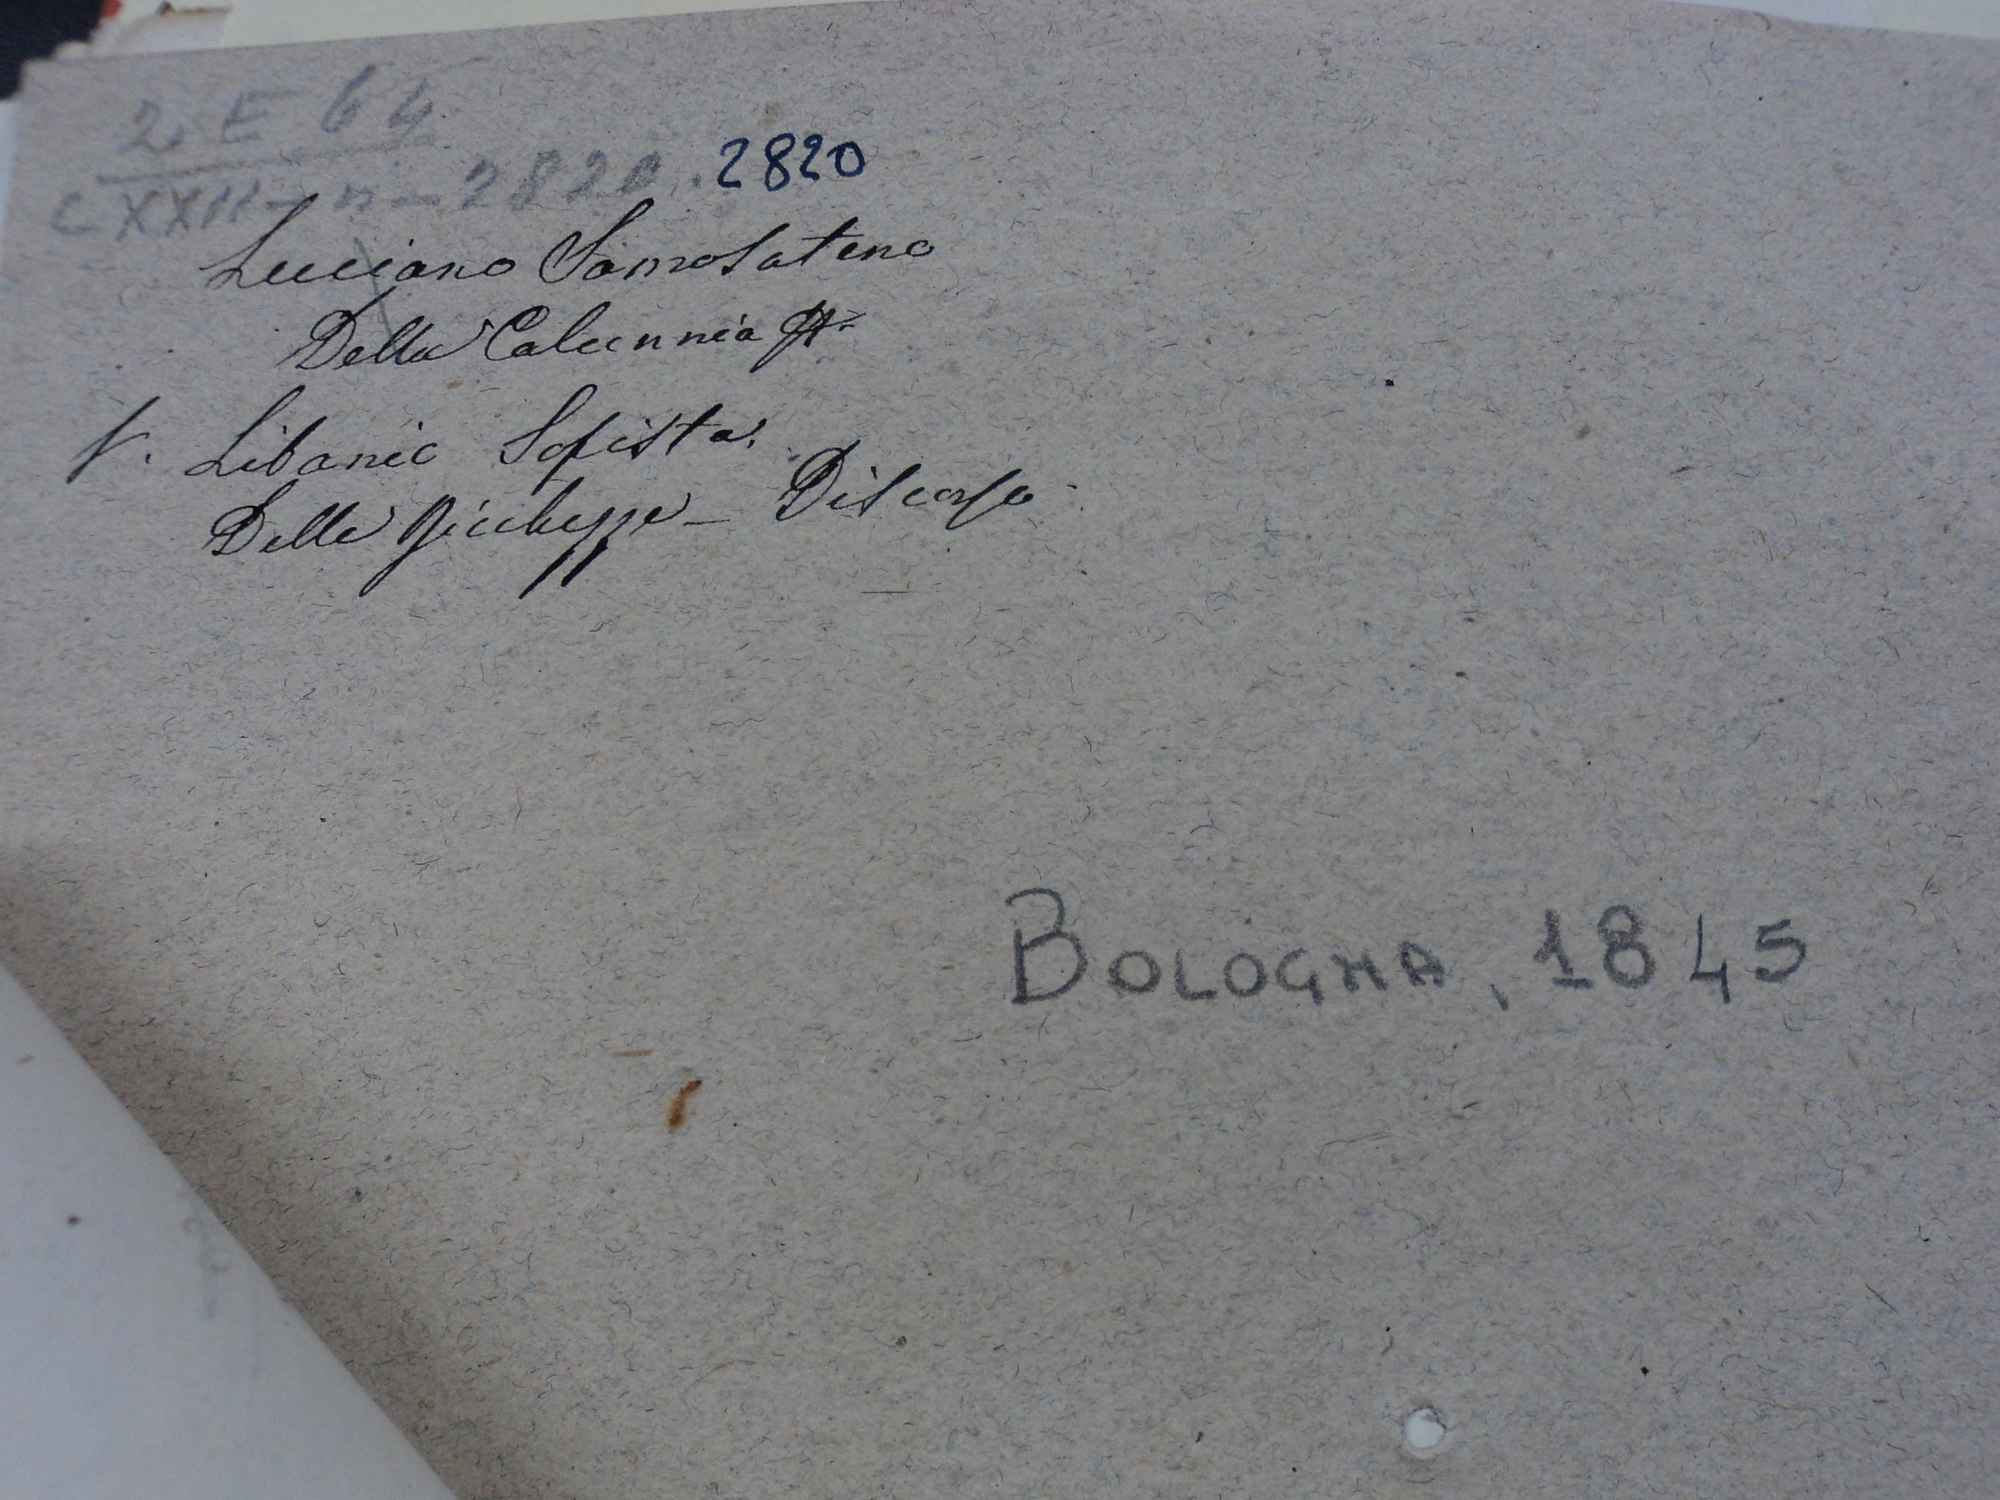 2 E 64
C XXII - n - 2820 . 2820
Luciano Samosateno
Della Calunnia
V. Libanio Sofista.
Delle Ricchezze - Discorso
BOLOGNA, 1845